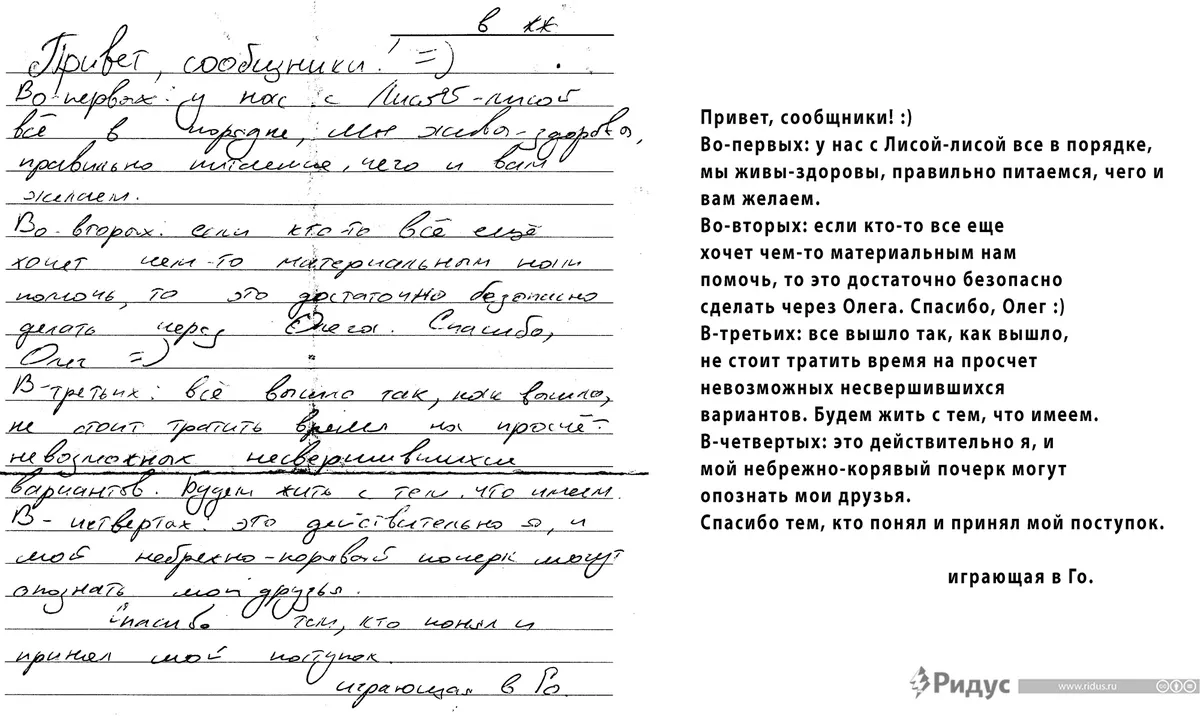 в жж
Привет, сообщники! =)
Во-первых: у нас с Лисой-лисой
всё в порядке, мы живы-здоровы,
правильно питаемся, чего и вам
желаем.
Во-вторых: если кто-то всё ещё
хочет чем-то материальным нам
помочь, то это достаточно безопасно
делать через Олега. Спасибо,
Олег =)
В-третьих: всё вышло так, как вышло,
не стоит тратить время на просчёт
невозможных несвершившихся
вариантов. Будем жить с тем, что имеем.
В-четвертых: это действительно я, и
мой небрежно-корявый почерк могут
опознать мои друзья.
Спасибо тем, кто понял и
принял мой поступок.
играющая в Го.
Привет, сообщники! :)
Во-первых: у нас с Лисой-лисой все в порядке,
мы живы-здоровы, правильно питаемся, чего и
вам желаем.
Во-вторых: если кто-то все еще
хочет чем-то материальным нам
помочь, то это достаточно безопасно
сделать через Олега. Спасибо, Олег :)
В-третьих: все вышло так, как вышло,
не стоит тратить время на просчет
невозможных несвершившихся
вариантов. Будем жить с тем, что имеем.
В-четвертых: это действительно я, и
мой небрежно-корявый почерк могут
опознать мои друзья.
Спасибо тем, кто понял и принял мой поступок.
играющая в Го.
Ридус www.ridus.ru